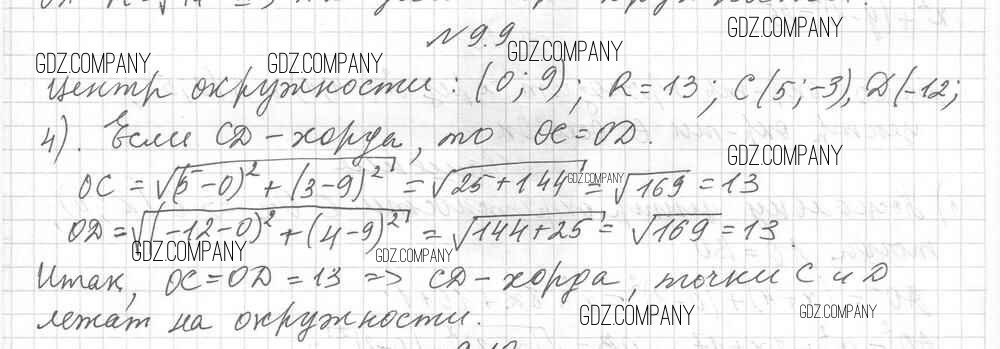 N 9.9
Центр окружности : (0; 9); R = 13; C(5; -3), D(-12;
4). Если CD - хорда, то OC = OD.
OC = √(5-0)² + (3-9)² = √25+144 = √169 = 13
OD = √(-12-0)² + (4-9)² = √144+25 = √169 = 13.
Итак, OC = OD = 13 => CD - хорда, точки C и D
лежат на окружности.
GDZ.COMPANY
GDZ.COMPANY
GDZ.COMPANY
GDZ.COMPANY
GDZ.COMPANY
GDZ.COMPANY
GDZ.COMPANY
GDZ.COMPANY
GDZ.COMPANY
GDZ.COMPANY